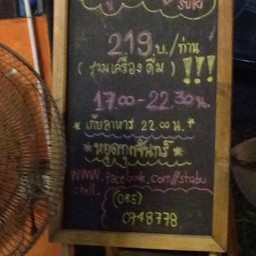 SUKI
219.บ./ท่าน
(รวมเครื่องดื่ม) !!!
17.00-22.30น.
* เก็บอาหาร 22.00น. *
* หยุดทุกจันทร์ *
www.facebook.com//shabu
chill.
(085)
0748778